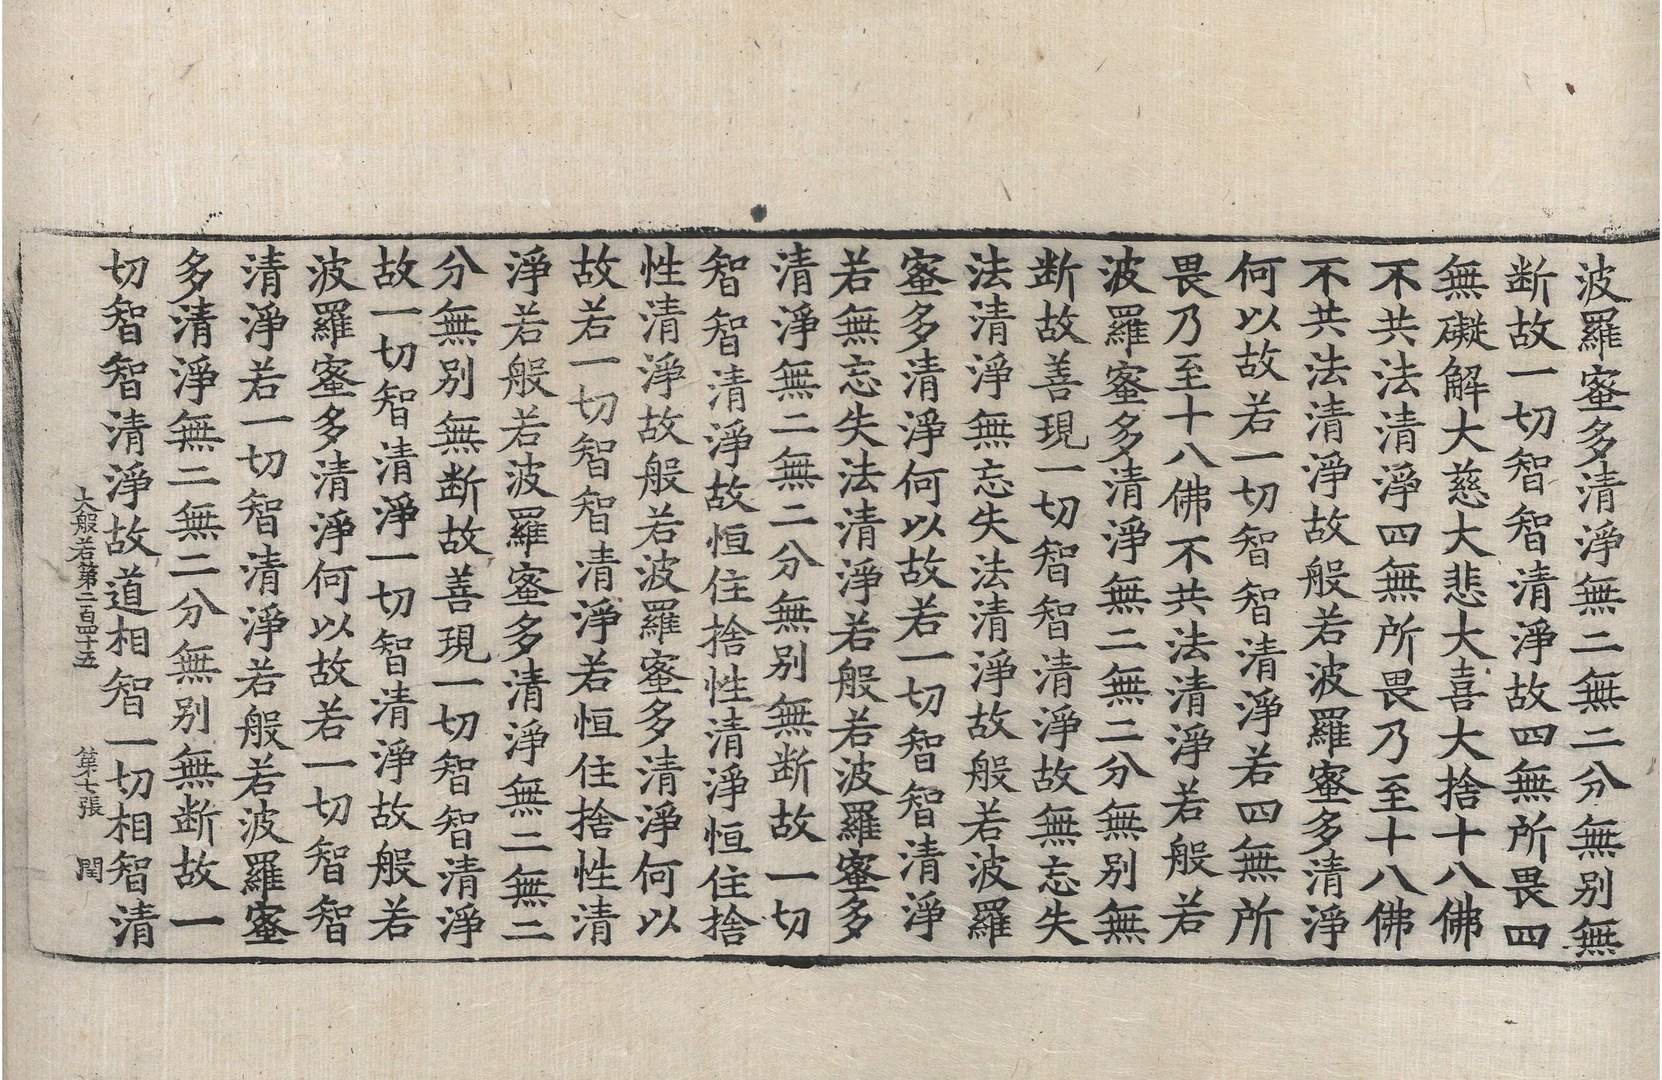 波羅蜜多清淨無二無二分無別無
断故一切智智清淨故四無所畏四
無礙解大慈大悲大喜大捨十八佛
不共法清淨四無所畏乃至十八佛
不共法清淨故般若波羅蜜多清淨
何以故若一切智智清淨若四無所
畏乃至十八佛不共法清淨若般若
波羅蜜多清淨無二無二分無別無
断故善現一切智智清淨故無忘失
法清淨無忘失法清淨故般若波羅
蜜多清淨何以故若一切智智清淨
若無忘失法清淨若般若波羅蜜多
清淨無二無二分無別無断故一切
智智清淨故恒住捨性清淨恒住捨
性清淨故般若波羅蜜多清淨何以
故若一切智智清淨若恒住捨性清
淨若般若波羅蜜多清淨無二無二
分無別無断故善現一切智智清淨
故一切智清淨一切智清淨故般若
波羅蜜多清淨何以故若一切智智
清淨若一切智清淨若般若波羅蜜
多清淨無二無二分無別無断故一
切智智清淨故道相智一切相智清
大般若第二百四十五 第七張 閏